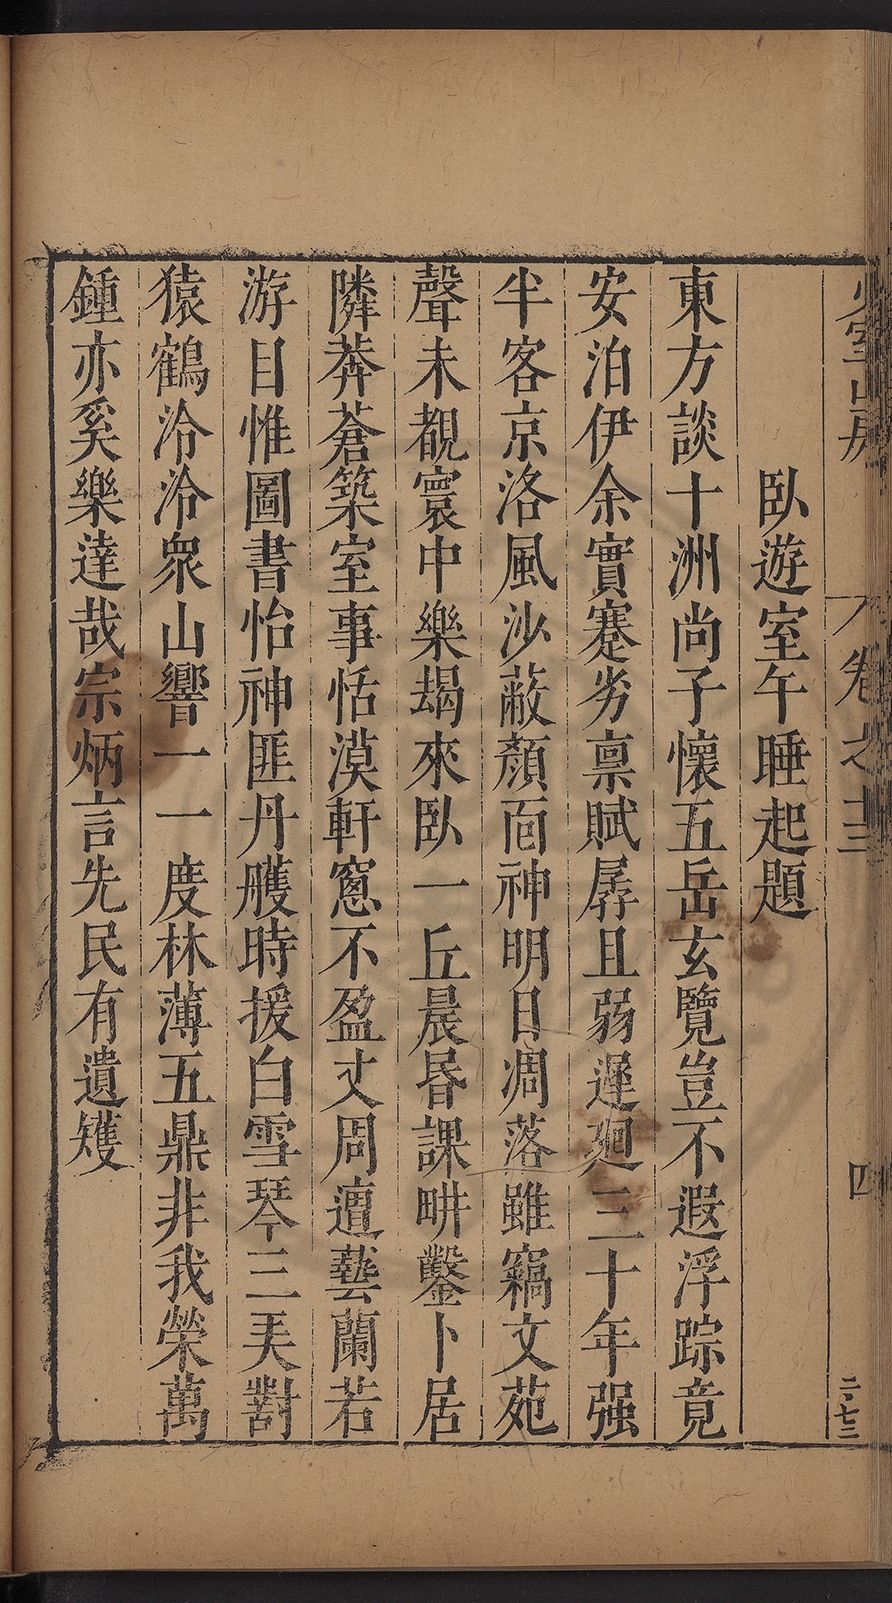 少室山房
卷之十三
四
二·七二
臥遊室午睡起題
東方談十洲尚子懷五岳玄覽豈不遐浮踪竟
安泊伊余實蹇劣禀賦孱且弱遲廻三十年强
半客京洛風沙蔽顏面神明日凋落雖竊文苑
聲未覩寰中樂朅來臥一丘晨昏課畊鑿卜居
隣莽蒼築室事恬漠軒窻不盈丈周遭藝蘭若
游目惟圖書怡神匪丹雘時援白雪琴三美對
猿鶴泠泠衆山響一一度林薄五鼎非我榮萬
鍾亦奚樂達哉宗炳言先民有遺矱